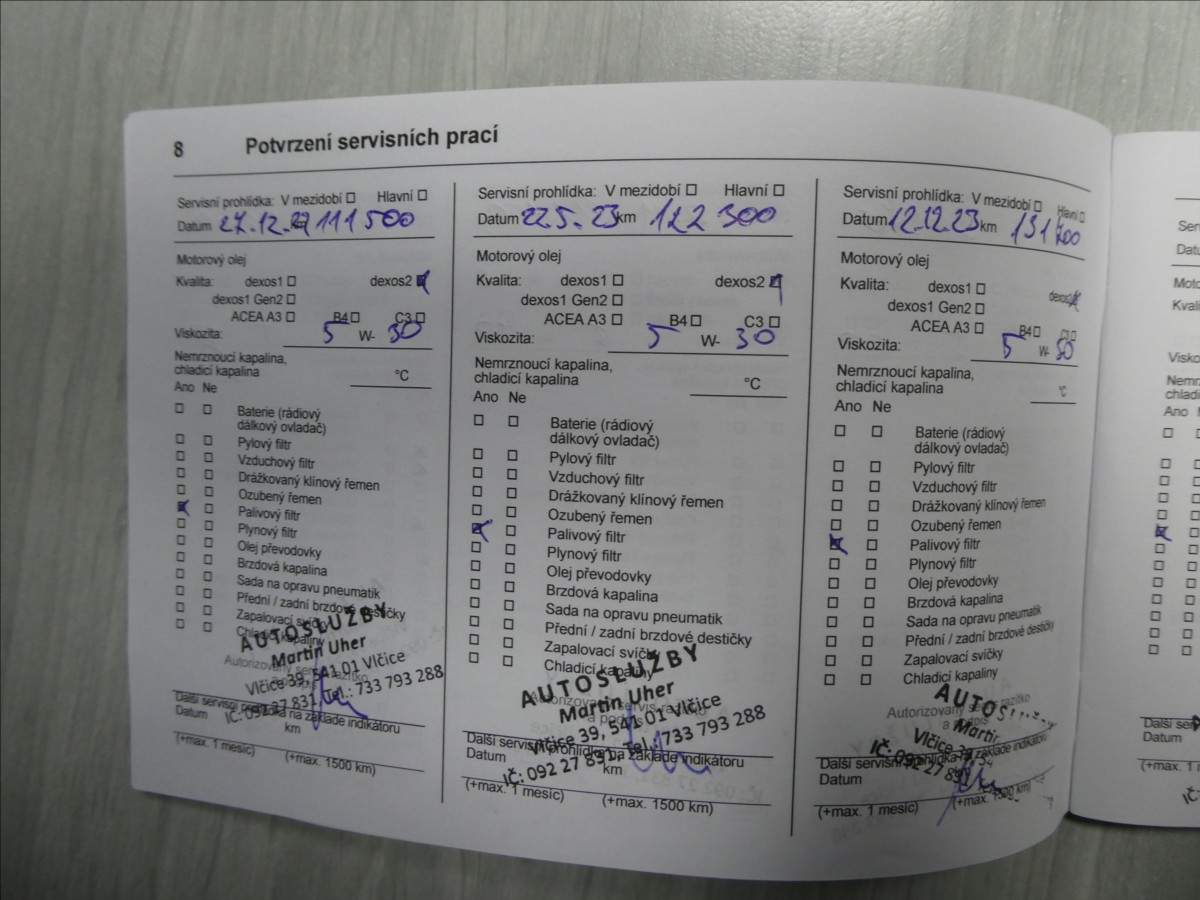 8 Potvrzení servisních prací
Servisní prohlídka: V mezidobí ☐ Hlavní ☐
Datum 27.12.22 111 500
Motorový olej
Kvalita: dexos1 ☐ dexos2 ☒
dexos1 Gen2 ☐
ACEA A3 ☐ B4 ☐ C3 ☐
Viskozita: 5 W- 30
Nemrznoucí kapalina,
chladicí kapalina °C
Ano Ne
☐ ☐ Baterie (rádiový
dálkový ovladač)
☐ ☐ Pylový filtr
☐ ☐ Vzduchový filtr
☐ ☐ Drážkovaný klínový řemen
☐ ☐ Ozubený řemen
☒ ☐ Palivový filtr
☐ ☐ Plynový filtr
☐ ☐ Olej převodovky
☐ ☐ Brzdová kapalina
☐ ☐ Sada na opravu pneumatik
☐ ☐ Přední / zadní brzdové destičky
☐ ☐ Zapalovací svíčky
☐ ☐ Chladicí kapaliny
AUTOSLUŽBY
Martin Uher
Vlčice 39, 541 01 Vlčice
IČ: 092 27 831, Tel.: 733 793 288
Další servisní prohlídka na základě indikátoru
Datum km
(+max. 1 měsíc) (+max. 1500 km)
Servisní prohlídka: V mezidobí ☐ Hlavní ☐
Datum 22.5.23 km 122 300
Motorový olej
Kvalita: dexos1 ☐ dexos2 ☒
dexos1 Gen2 ☐
ACEA A3 ☐ B4 ☐ C3 ☐
Viskozita: 5 W- 30
Nemrznoucí kapalina,
chladicí kapalina °C
Ano Ne
☐ ☐ Baterie (rádiový
dálkový ovladač)
☐ ☐ Pylový filtr
☐ ☐ Vzduchový filtr
☐ ☐ Drážkovaný klínový řemen
☐ ☐ Ozubený řemen
☒ ☐ Palivový filtr
☐ ☐ Plynový filtr
☐ ☐ Olej převodovky
☐ ☐ Brzdová kapalina
☐ ☐ Sada na opravu pneumatik
☐ ☐ Přední / zadní brzdové destičky
☐ ☐ Zapalovací svíčky
☐ ☐ Chladicí kapaliny
AUTOSLUŽBY
Martin Uher
Vlčice 39, 541 01 Vlčice
IČ: 092 27 831, Tel.: 733 793 288
Další servisní prohlídka na základě indikátoru
Datum km
(+max. 1 měsíc) (+max. 1500 km)
Servisní prohlídka: V mezidobí ☐ Hlavní ☐
Datum 12.12.23 km 131 700
Motorový olej
Kvalita: dexos1 ☐ dexos2 ☒
dexos1 Gen2 ☐
ACEA A3 ☐ B4 ☐ C3 ☐
Viskozita: 5 W- 30
Nemrznoucí kapalina,
chladicí kapalina °C
Ano Ne
☐ ☐ Baterie (rádiový
dálkový ovladač)
☐ ☐ Pylový filtr
☐ ☐ Vzduchový filtr
☐ ☐ Drážkovaný klínový řemen
☐ ☐ Ozubený řemen
☒ ☐ Palivový filtr
☐ ☐ Plynový filtr
☐ ☐ Olej převodovky
☐ ☐ Brzdová kapalina
☐ ☐ Sada na opravu pneumatik
☐ ☐ Přední / zadní brzdové destičky
☐ ☐ Zapalovací svíčky
☐ ☐ Chladicí kapaliny
Autorizovaný
AUTOSLUŽBY
Martin
Vlčice
IČ: 092 27 831
Další servisní prohlídka na základě indikátoru
Datum
(+max. 1 měsíc) (+max. 1500 km)